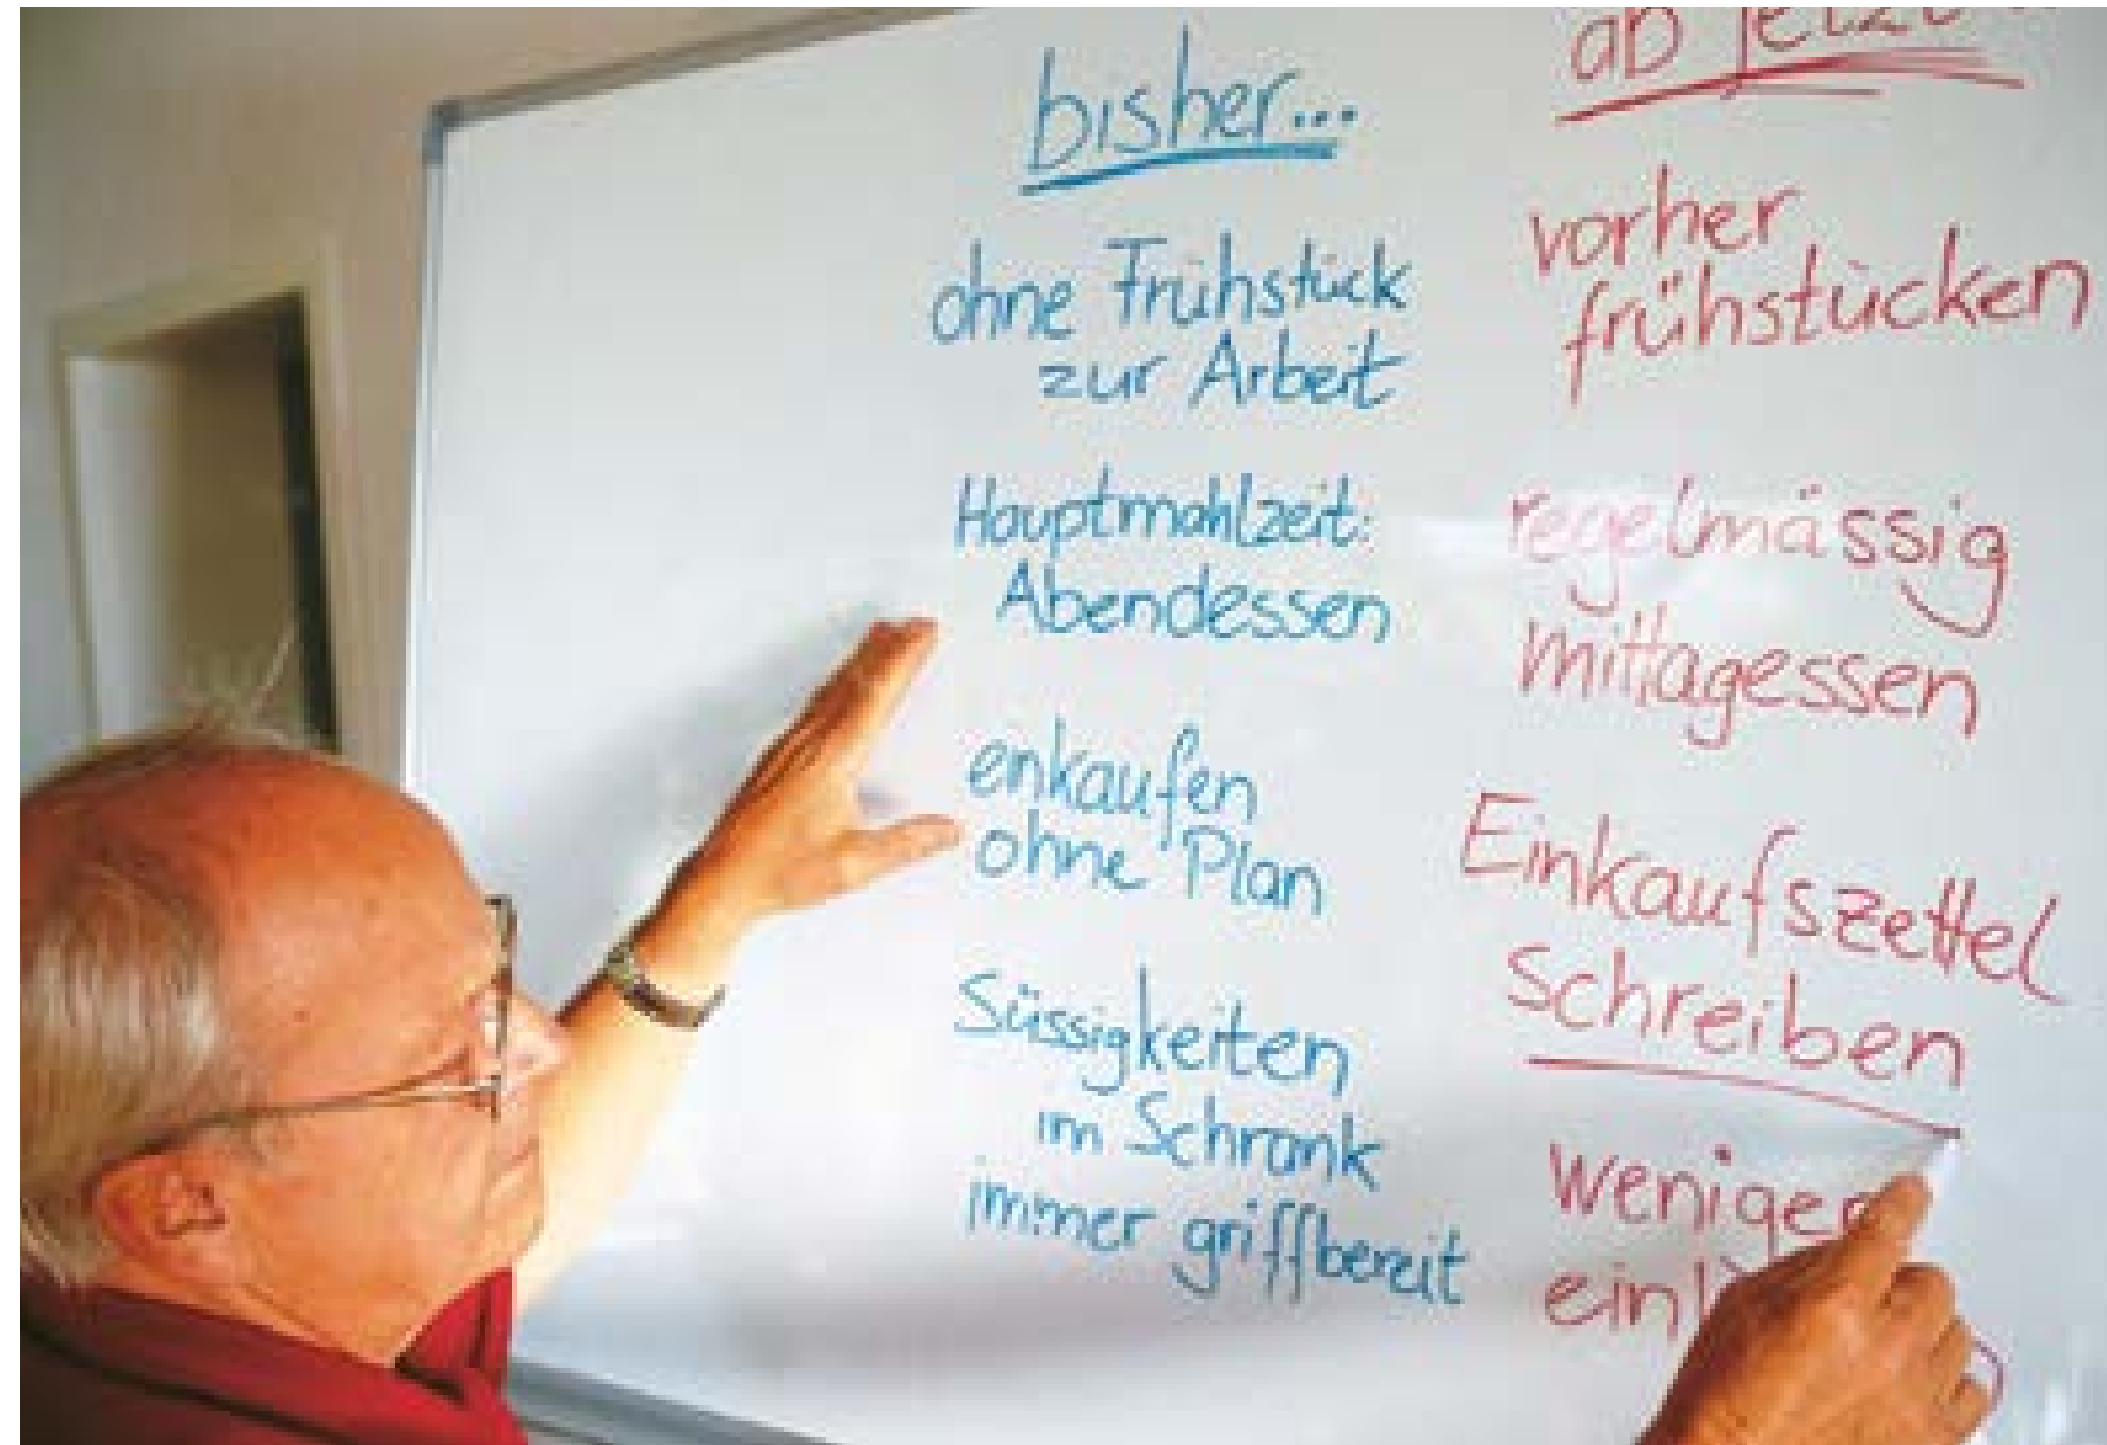 bisher...
ohne Frühstück
zur Arbeit
Hauptmahlzeit:
Abendessen
enkaufen
ohne Plan
Süssigkeiten
im Schrank
immer griffbereit
ab jetzt
vorher
frühstücken
regelmässig
Mittagessen
Einkaufszettel
schreiben
weniger